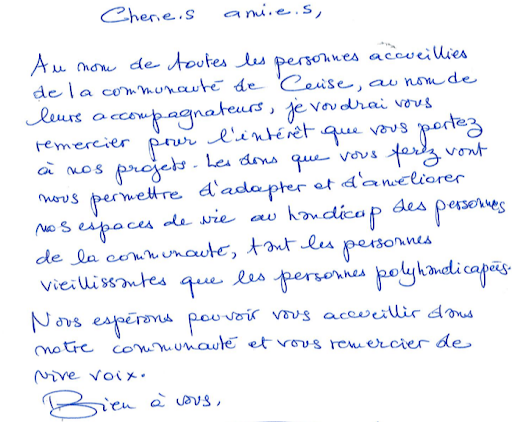 Chere.s ami.e.s,
Au nom de toutes les personnes accueillies
de la communauté de Cuise, au nom de
leurs accompagnateurs, je voudrai vous
remercier pour l'intérêt que vous portez
à nos projets. Les dons que vous ferez vont
nous permettre d'adapter et d'améliorer
nos espaces de vie au handicap des personnes
de la communauté, tant les personnes
vieillissantes que les personnes polyhandicapées.
Nous espérons pouvoir vous accueillir dans
notre communauté et vous remercier de
vive voix.
Bien à vous,